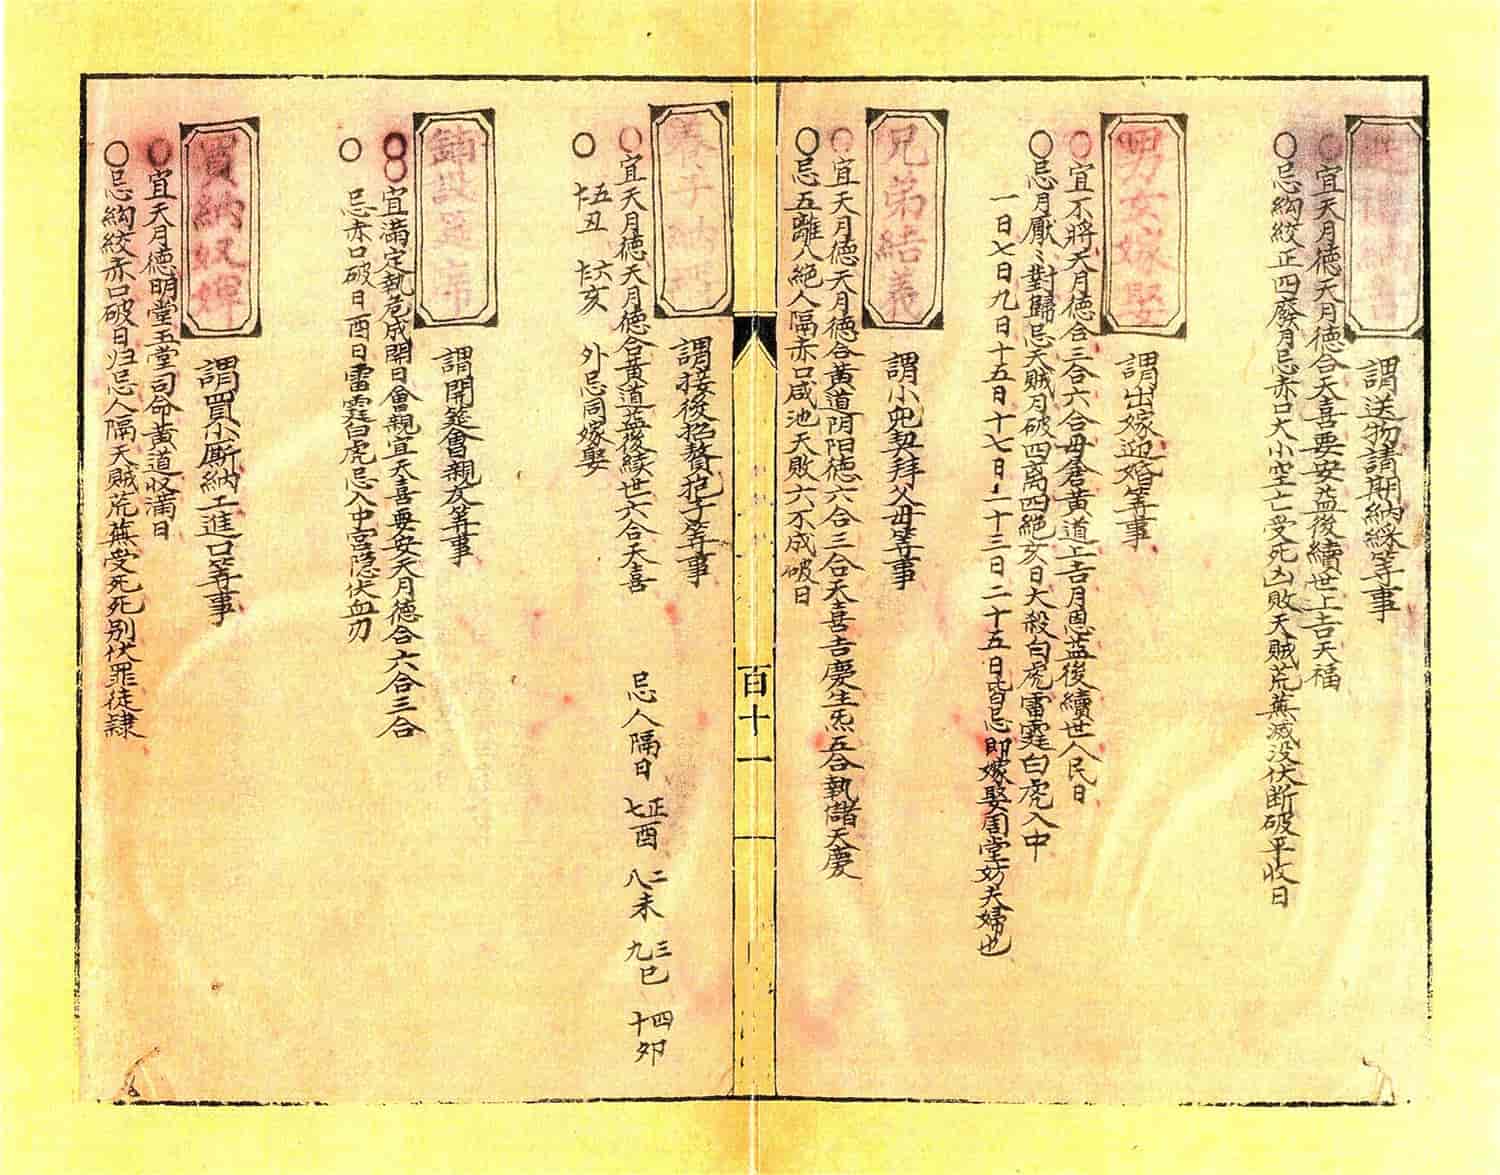 謂送物請期納綵等事
宜天月德天月德合天喜要安益後續世上吉天福
忌絢絞正四廢月忌赤口大小空亡受死凶敗天賊荒蕪滅没伏断破平收日
男女嫁娶
謂出嫁迎婚等事
宜不將天月德合三合六合母倉黄道上吉月恩益後續世人民日
忌月厭〻對歸忌天賊月破四离四絕亥日大殺白虎雷霆白虎入中
一日七日九日十五日十七日二十三日二十五日皆忌即嫁娶周堂妨夫婦也
兄弟結義
謂小兜契拜父母等事
宜天月德天月德合黄道阴阳德六合三合天喜吉慶生炁五合執儲天慶
忌五離八絕人隔赤口咸池天敗六不成破日
百十一
謂接後招贅抱子等事
宜天月德天月德合黄道益後續世六合天喜
十五丑 十六亥 外忌同嫁娶
忌人隔日 正七酉 二八未 三九巳 四十夘
謂開筵會親友等事
宜滿定執危成開日會親宜天喜要安天月德合六合三合
忌赤口破日酉日雷霆白虎忌入中宮隐伏血刃
買納奴婢
謂買小厮納工進口等事
宜天月德明堂玉堂司命黄道收滿日
忌絢絞赤口破日归忌人隔天賊荒蕪受死死别伏罪徒隸